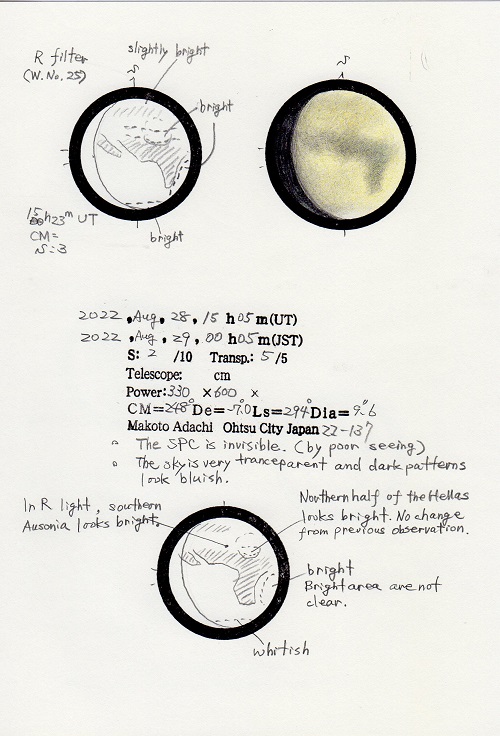 R filter
(W.No.25)
slightly bright
bright
15h23m UT
CM=
S=3
bright
2022, Aug, 28, 15 h 05 m (UT)
2022, Aug, 29, 00 h 05 m (JST)
S: 2 /10 Transp.: 5 /5
Telescope: cm
Power: 330 ×600 ×
CM=248° De=-7.0 Ls=294° Dia=9."6
Makoto Adachi Ohtsu City Japan 22-137
The SPC is invisible. (by poor seeing)
The sky is very tranceparent and dark patterns
look bluish.
In R light, southern
Ausonia looks bright.
Northern half of the Hellas
looks bright. No change
from previous observation.
bright
Bright area are not
clear.
whitish